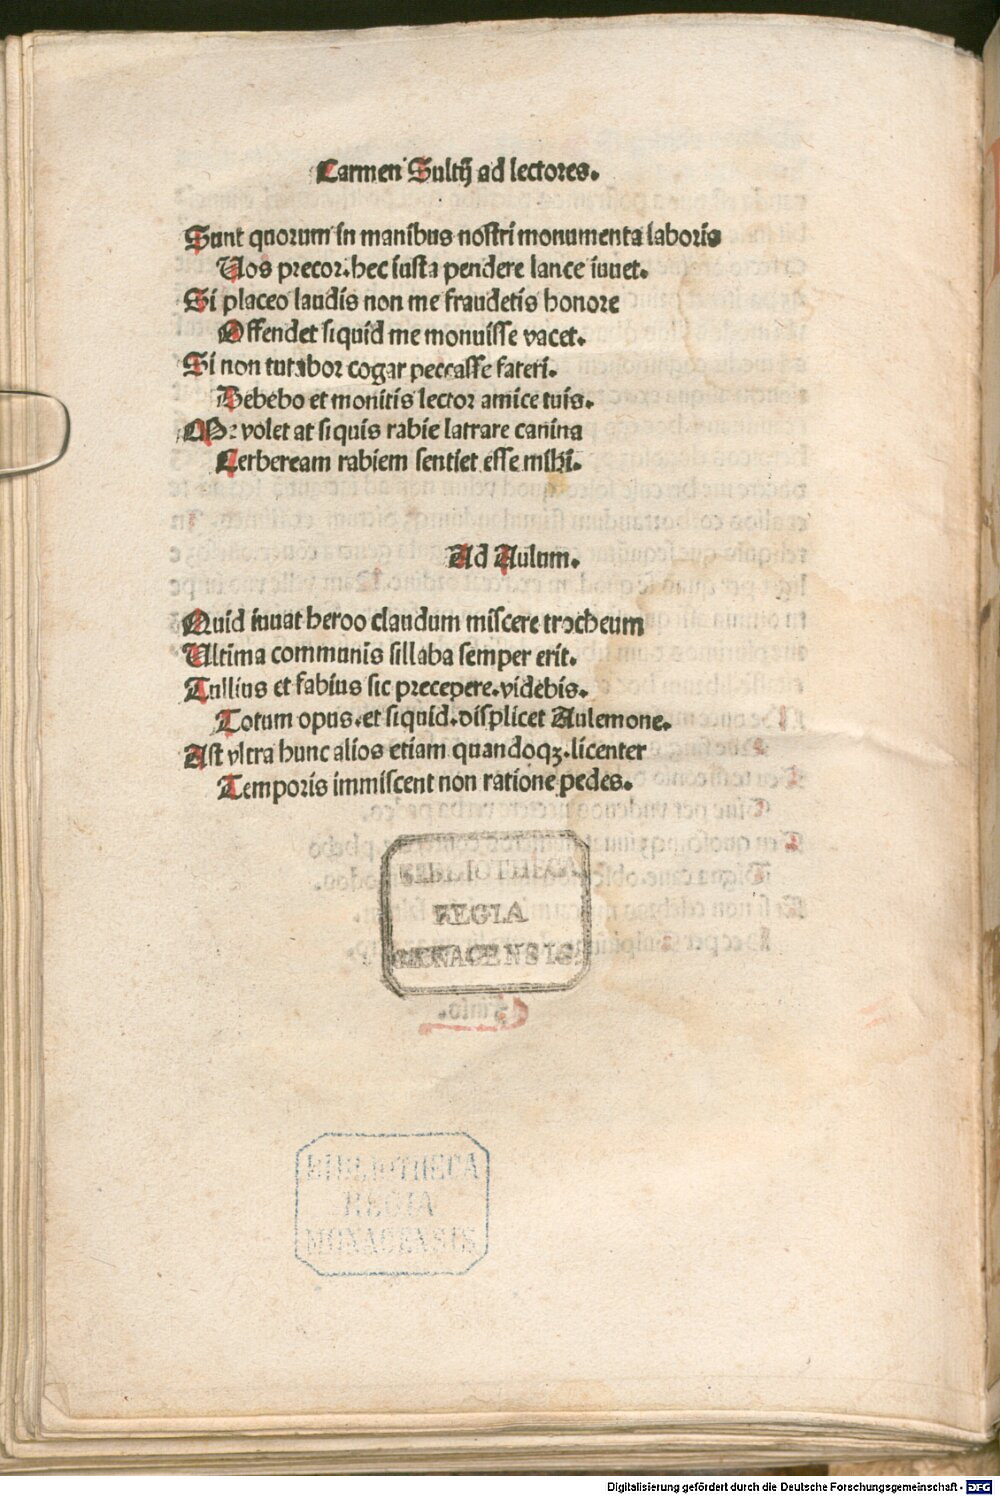 Carmen Sultij ad lectores.
Sunt quorum in manibus nostri monumenta laboris
Uos precor. hec iusta pendere lance iuuet.
Si placeo laudis non me fraudetis honore
Offendet siquid me monuisse vacet.
Si non tutabor cogar peccasse fateri.
Debebo et monitis lector amice tuis.
volet at siquis rabie latrare canina
Cerbeream rabiem sentiet esse mihi.
Ad Aulum.
Quid iuuat heroo claudum miscere trocheum
Ultima communis sillaba semper erit.
Tullius et fabius sic precepere. videbis.
Totum opus. et siquid. displicet Aulemone.
Ast vltra hunc alios etiam quandoqꝫ. licenter
Temporis immiscent non ratione pedes.
BIBLIOTHECA
REGIA
MONACENSIS.
Finis.
BIBLIOTHECA
REGIA
MONACENSIS
Digitalisierung gefördert durch die Deutsche Forschungsgemeinschaft - DFG